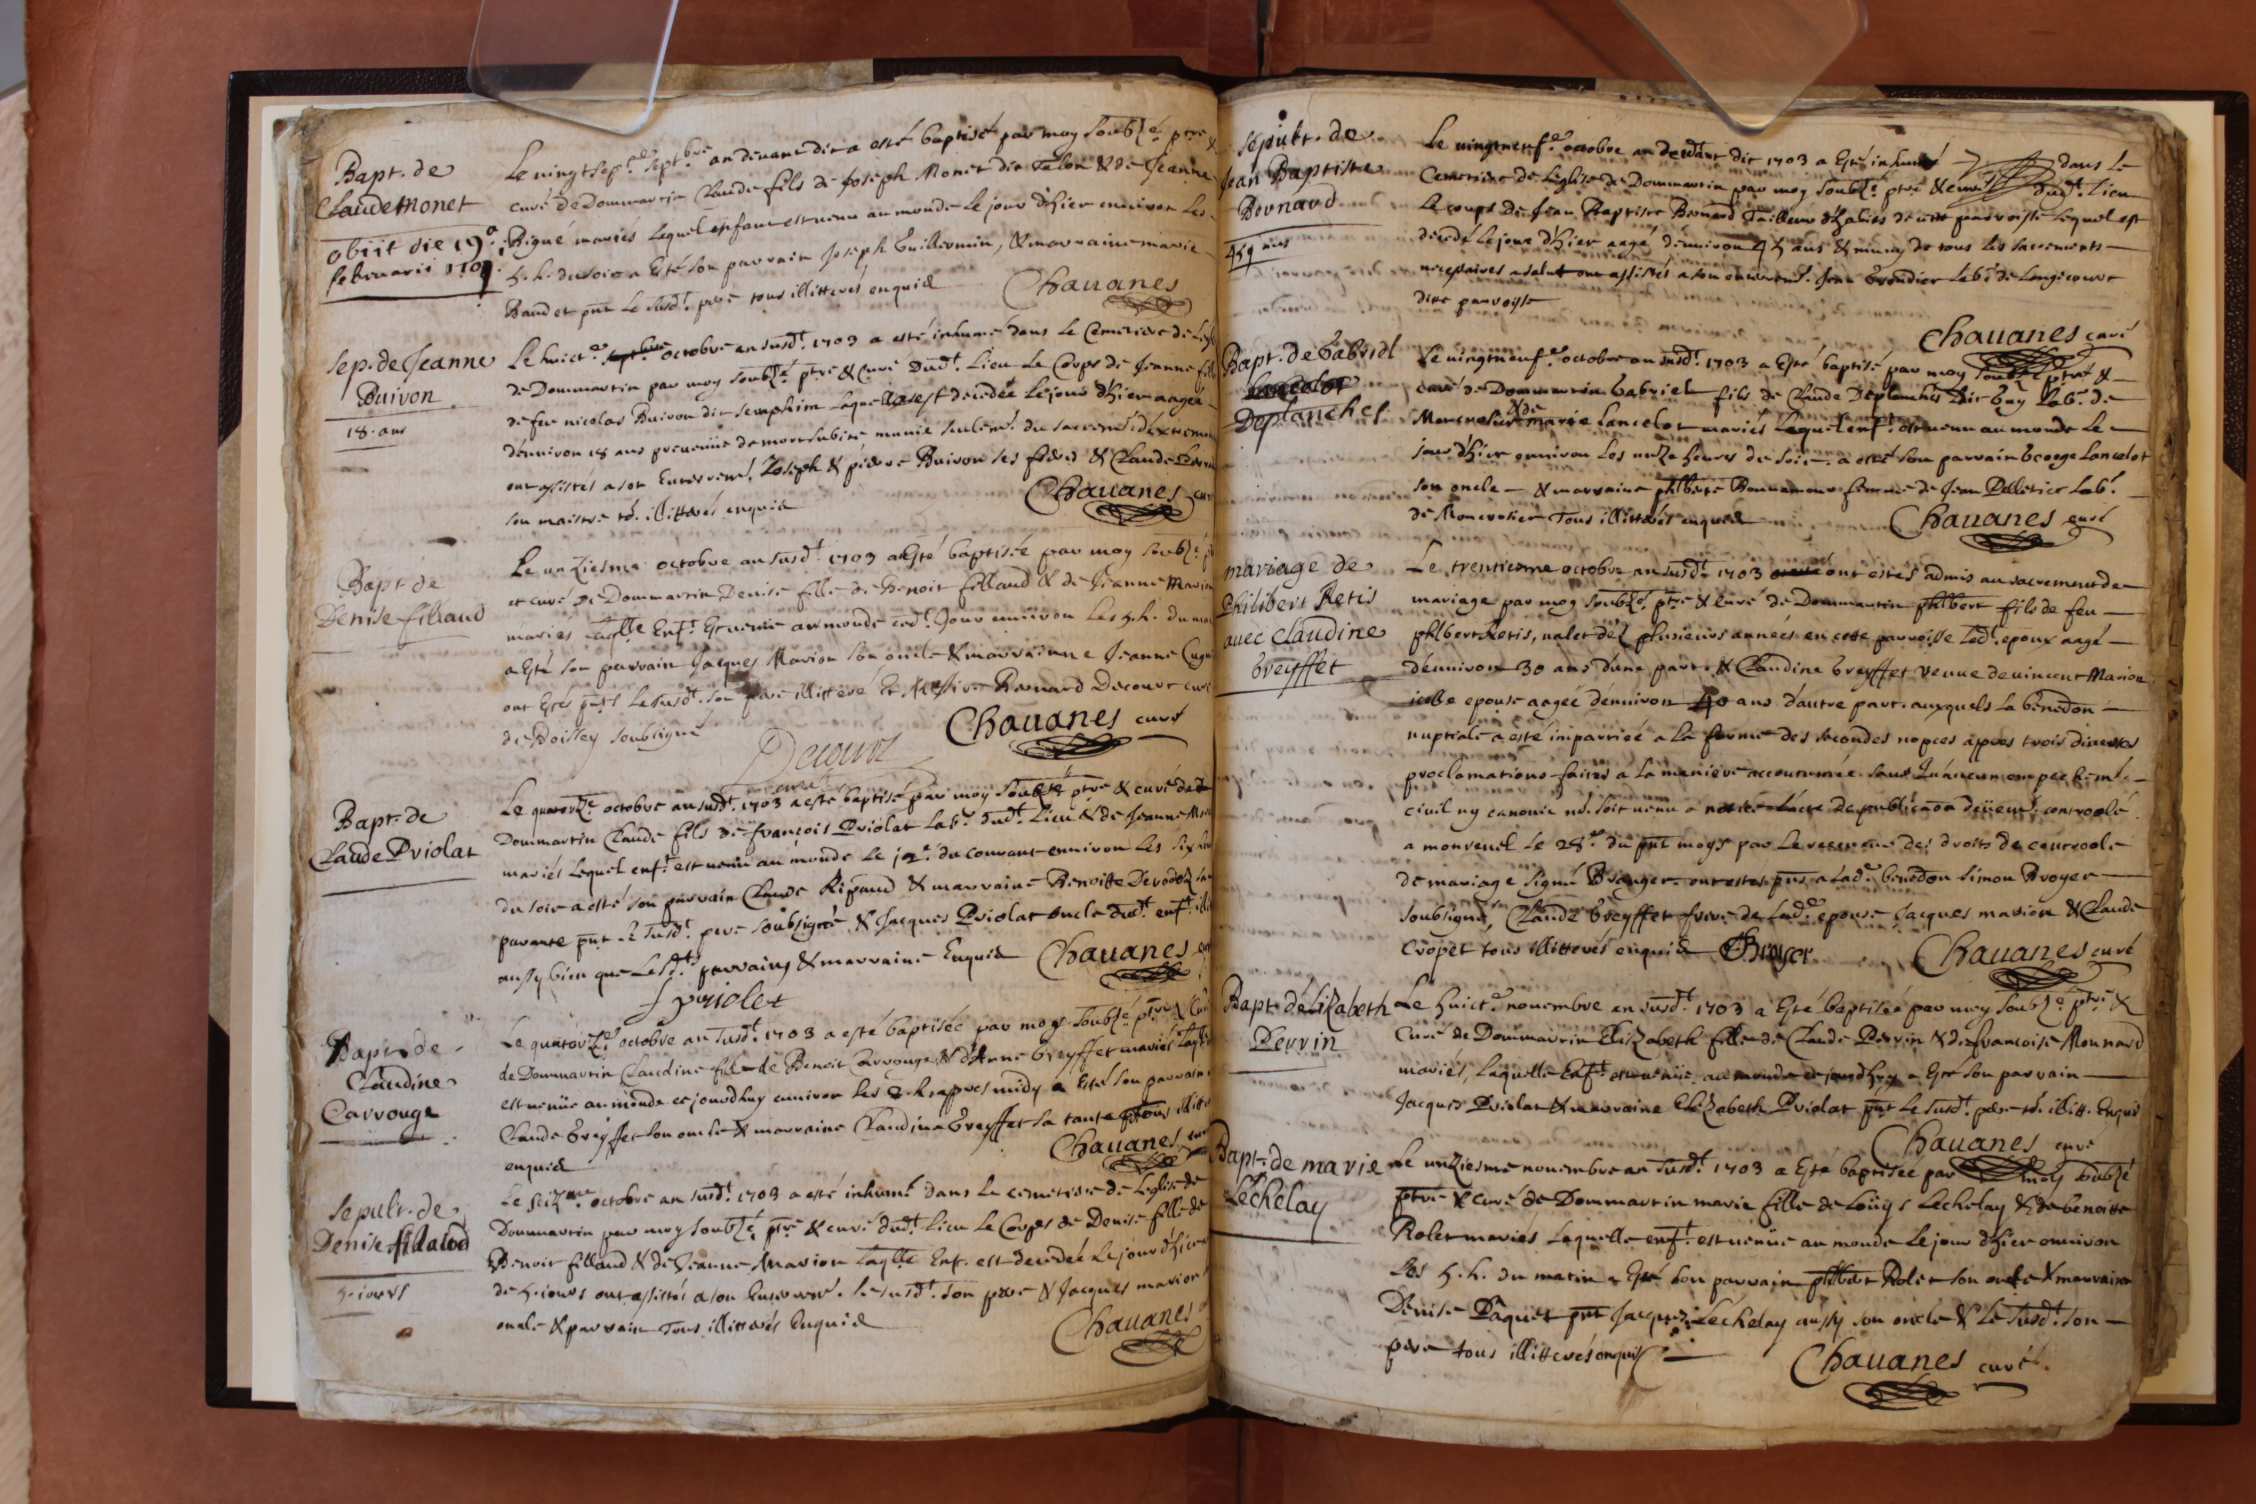 Bapt. de
Claude Monet
obiit die 19a
februarii 1709.
Le vingt sept.e septbre an devant dit a esté baptisé par moy soubz.é ptre &
curé de Dommartin Claude fils de Joseph Monet dit Talon & de Jeanne
Pigué mariés lequel enfant est venu au monde le jour d'hier environ les
5. h. du soir a esté son parrain Joseph Guillermin, & marraine marie
Baudet pnt le susd.t père tous illitterés enquis
Chauanes
sep. de Jeanne
Buiron
18. ans
Le huict.e octobre an susd.t 1703 a esté inhumé dans le Cemetiere de
de Dommartin par moy soubz.é ptre & curé dud.t lieu le Corps de Jeanne
de feu nicolas Buiron dit seraphim laquelle est decedée le jour d'hier aagée
d'environ 18 ans prevenüe de mort subite munie seulem.t du sacrem.t
ont assistés a son enterrem.t Joseph & pierre Buiron ses freres & Claude
son maistre to. illitterés enquis
Chauanes cur
Bapt. de
Denise filliaud
Le unziesme octobre an susd.t 1703 a esté baptisée par moy soubz.é
et curé de Dommartin Denise fille de Benoit filland & de Jeanne Marion
mariés laqlle enf.t est venüe au monde ced.t jour environ les 5. h. du ma
a esté son parrain Jacques Marion son oncle & marrainne Jeanne
ont estés pnts le susd.t son père illitteré & Messire Renard Decourt curé
de Boissey soubsigné
Decourt
curé
Chauanes curé
Bapt. de
Claude Priolat
Le quatorze octobre an susd.t 1703 a esté baptisé par moy soubz.é ptre & curé de
Dommartin Claude fils de françois Priolat lab.r dud.t lieu & de Jeanne
mariés lequel enf.t est venu au monde le 12.e du courant environ les six
du soir a esté son parrain Claude Ripaud & marraine Benoitte
parante pnt le susd.t pere soubsigné & Jacques Priolat oncle dud.t enf.t
aussy bien que lesd.ts parrains & marraine Enquis
Chauanes
f priolet
Bapt. de
Claudine
Carrouge
Le quatorze octobre an susd.t 1703 a esté baptisée par moy soubz.é ptre & Curé
de Dommartin Claudine fille de Benoit Carrouge & d'Anne Greyffet mariés
est venüe au monde ce jourd'huy environ les 2. h. appres midy a esté son parrain
Claude Greyffet son oncle & marraine Claudine Greyffet sa tante tous
enquis
Chauanes
sepult. de
Denise filland
5. jours
Le seizme octobre an susd.t 1703 a esté inhumé dans le cemetiere de l'eglise de
Dommartin par moy soubz.é ptre & curé dud.t lieu le Corps de Denise fille de
Benoit filland & de Jeanne Marion laqlle Enf. est decedée le jour d'hier
de 5. jours ont assistés a son Enterrem.t le susd.t son père & Jacques marion
oncle & parrain Tous illitterés Enquis
Chauanes
sepult. de
Jean Baptiste
Bernard
45 ans
Le vingtneuf.e octobre an devant dit 1703 a esté inhumé dans le
Cemetiere de l'église de Dommartin par moy soubz.é ptre & curé dud.t lieu
le corps de Jean Baptiste Bernard Tailleur d'habits de cette parroisse lequel est
decedé le jour d'hier aagé d'environ 45 ans & muny de tous les sacrements
necessaires a salut ont assistés a son enterrem.t Jean lab.r de Longecourt
dite parroisse
Chauanes curé
Bapt. de Gabriel
Lancelot
Deplanches
Le vingtneuf.e octobre an susd.t 1703 a esté baptisé par moy soubz.é ptre &
curé de Dommartin Gabriel fils de Claude Deplanches dit Guy Lab.r de
& de marie Lancelot mariés lequel enf.t est venu au monde le
jour d'hier environ les unze heures du soir a esté son parrain George Lancelot
son oncle & marraine philberte Bonnamour femme de Jean Pelletier lab.r
de Moncrotier Tous illitterés enquis
Chauanes curé
mariage de
Philibert Retis
avec Claudine
Greyffet
Le trentiesme octobre an susd.t 1703 ont estés admis au sacrement de
mariage par moy soubz.é ptre & curé de Dommartin philbert fils de feu
philbert Retis, valet dèz plusieurs années en cette parroisse led.t epoux aagé
d'environ 30 ans d'une part. & Claudine Greyffet veuve de vincent Marion
icelle epouse aagée d'environ 40 ans d'autre part. auxquels la benedon
nuptiale a esté impartiée a la forme des secondes nopces appres trois diverses
proclamations faites a la maniere accoutumée sans qu'aucun empechemt.
civil ny canonic nd. soit venu a notice l'acte de publicaon deüem.t controolé
a monrevel le 28.e du pnt moys par le receveur des droits de controole
de mariage signé ont estés pns a lad.e benedon simon Broyer
soubsigné, Claude Greyffet frere de lad.e epouse Jacques marion & Claude
Cropet tous illitterés enquis Broyer
Chauanes curé
Bapt. d'Elizabeth
Perrin
Le huict.e novembre an susd.t 1703 a esté baptisée par moy soubz.é ptre &
Curé de Dommartin Elizabeth fille de Claude Perrin & de françoise Monnard
mariés, laquelle Enf.t est venüe au monde ce jourd'huy a esté son parrain
Jacques Priolat & marraine Elizabeth Priolat pnt le susd.t père to. illitt. Enquis
Chauanes curé
Bapt. de marie
Lechelay
Le unziesme novembre an susd.t 1703 a esté baptisée par moy soubzé
ptre & curé de Dommartin marie fille de Loüys Lechelay & de benoitte
Rolet mariés laquelle enf.t est venüe au monde le jour d'hier environ
les 5. h. du matin a esté son parrain philbert Rolet son oncle & marraine
Denise Paquet pnt Jacques Lechelay aussy son oncle & le susd.t son
père tous illitterés enquis
Chauanes curé.